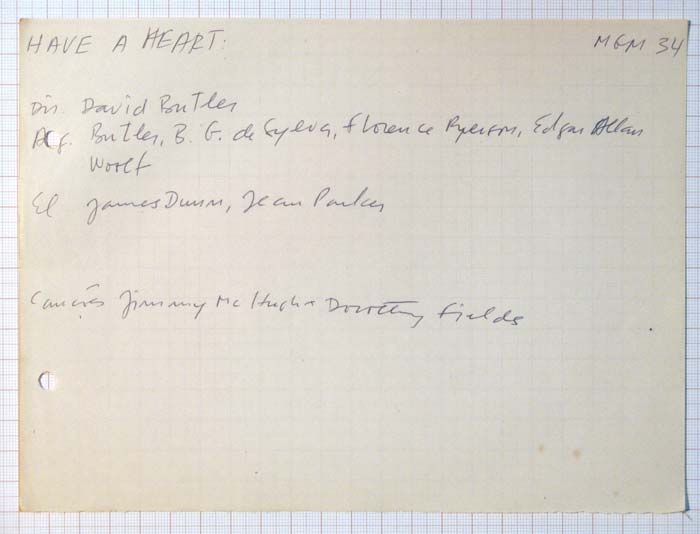 HAVE A HEART: MGM 34
Dir. David Butler
Arg. Butler, B. G. de Sylva, Florence Ryerson, Edgar Allan
Woolf
El James Dunn, Jean Parker
Canções Jimmy Mc Hugh + Dorothy Fields